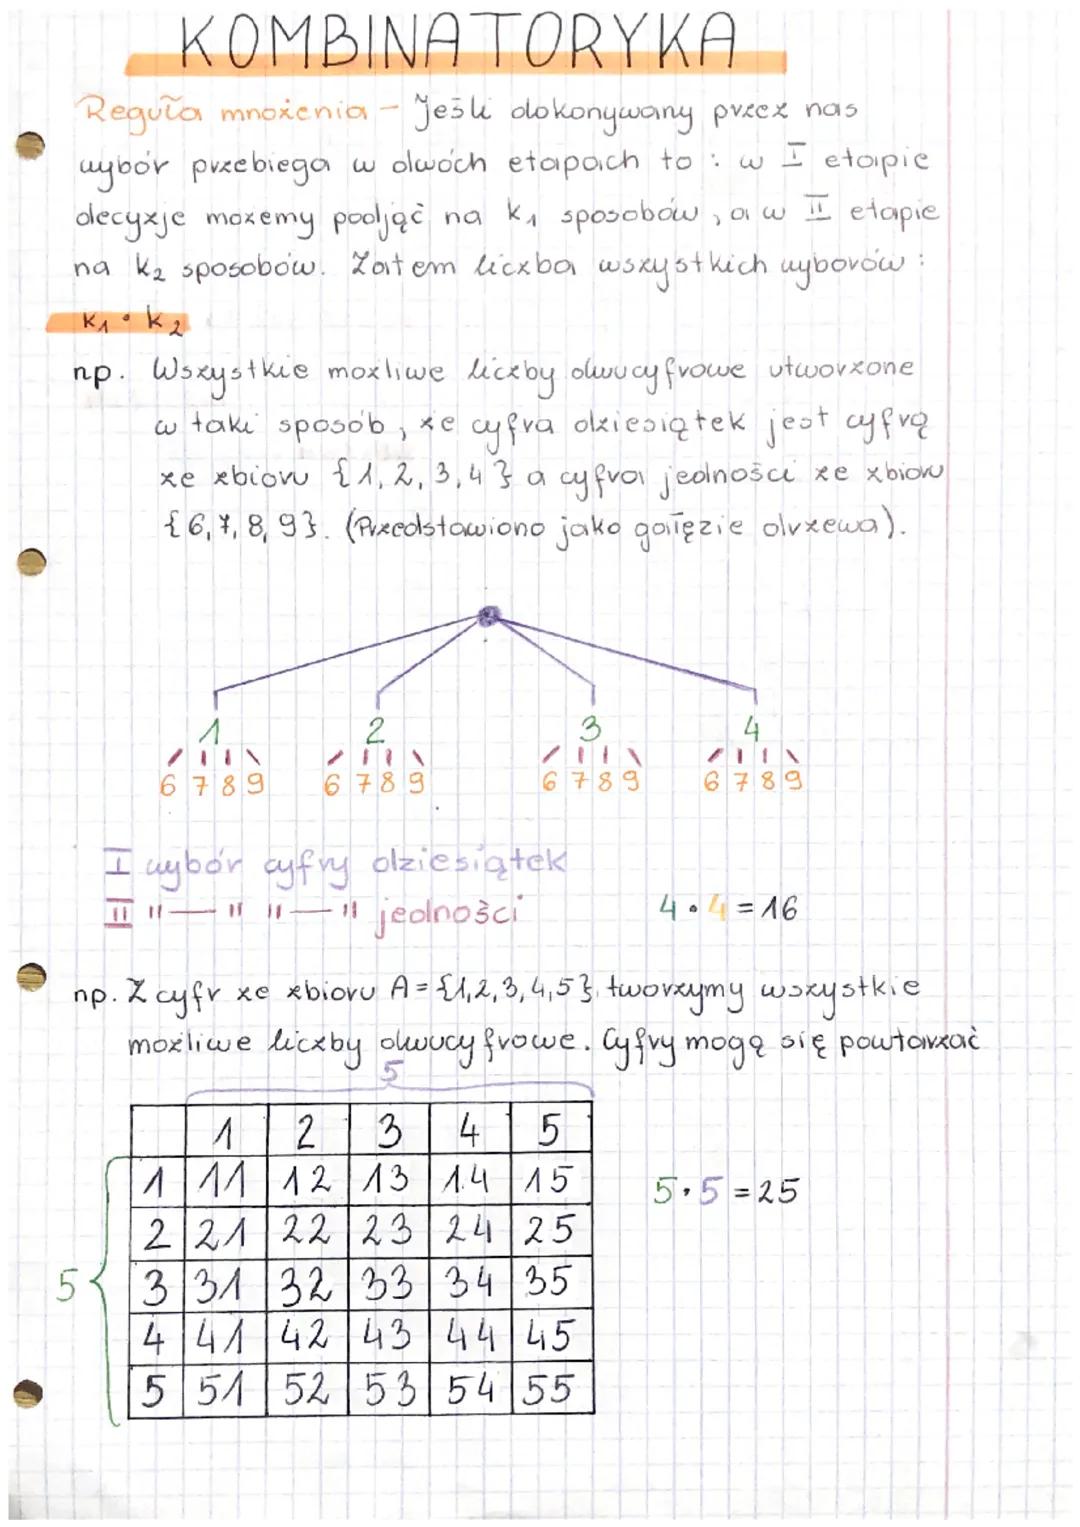 KOMBINATORYKA
Reguła mnożenia - Jeśli dokonywany przez nas
wybór przebiega w dwóch etapach to : w I etapie
decyzje możemy podjąć na k₁ sposobów, a w II etapie
na k₂ sposobów. Zatem liczba wszystkich wyborów :
k₁ • k₂
np. Wszystkie możliwe liczby dwucyfrowe utworzone
w taki sposób, że cyfra dziesiątek jest cyfrą
ze zbioru {1, 2, 3, 4} a cyfra jedności ze zbioru
{6, 7, 8, 9}. (Przedstawiono jako gałęzie drzewa).
1 2 3 4
6 7 8 9 6 7 8 9 6 7 8 9 6 7 8 9
I wybór cyfry dziesiątek
II "—" "—" jedności 4 • 4 = 16
np. Z cyfr ze zbioru A = {1,2,3,4,5}, tworzymy wszystkie
możliwe liczby dwucyfrowe. Cyfry mogą się powtarzać
5
1 2 3 4 5
1 11 12 13 14 15 5 • 5 = 25
2 21 22 23 24 25
5 3 31 32 33 34 35
4 41 42 43 44 45
5 51 52 53 54 55